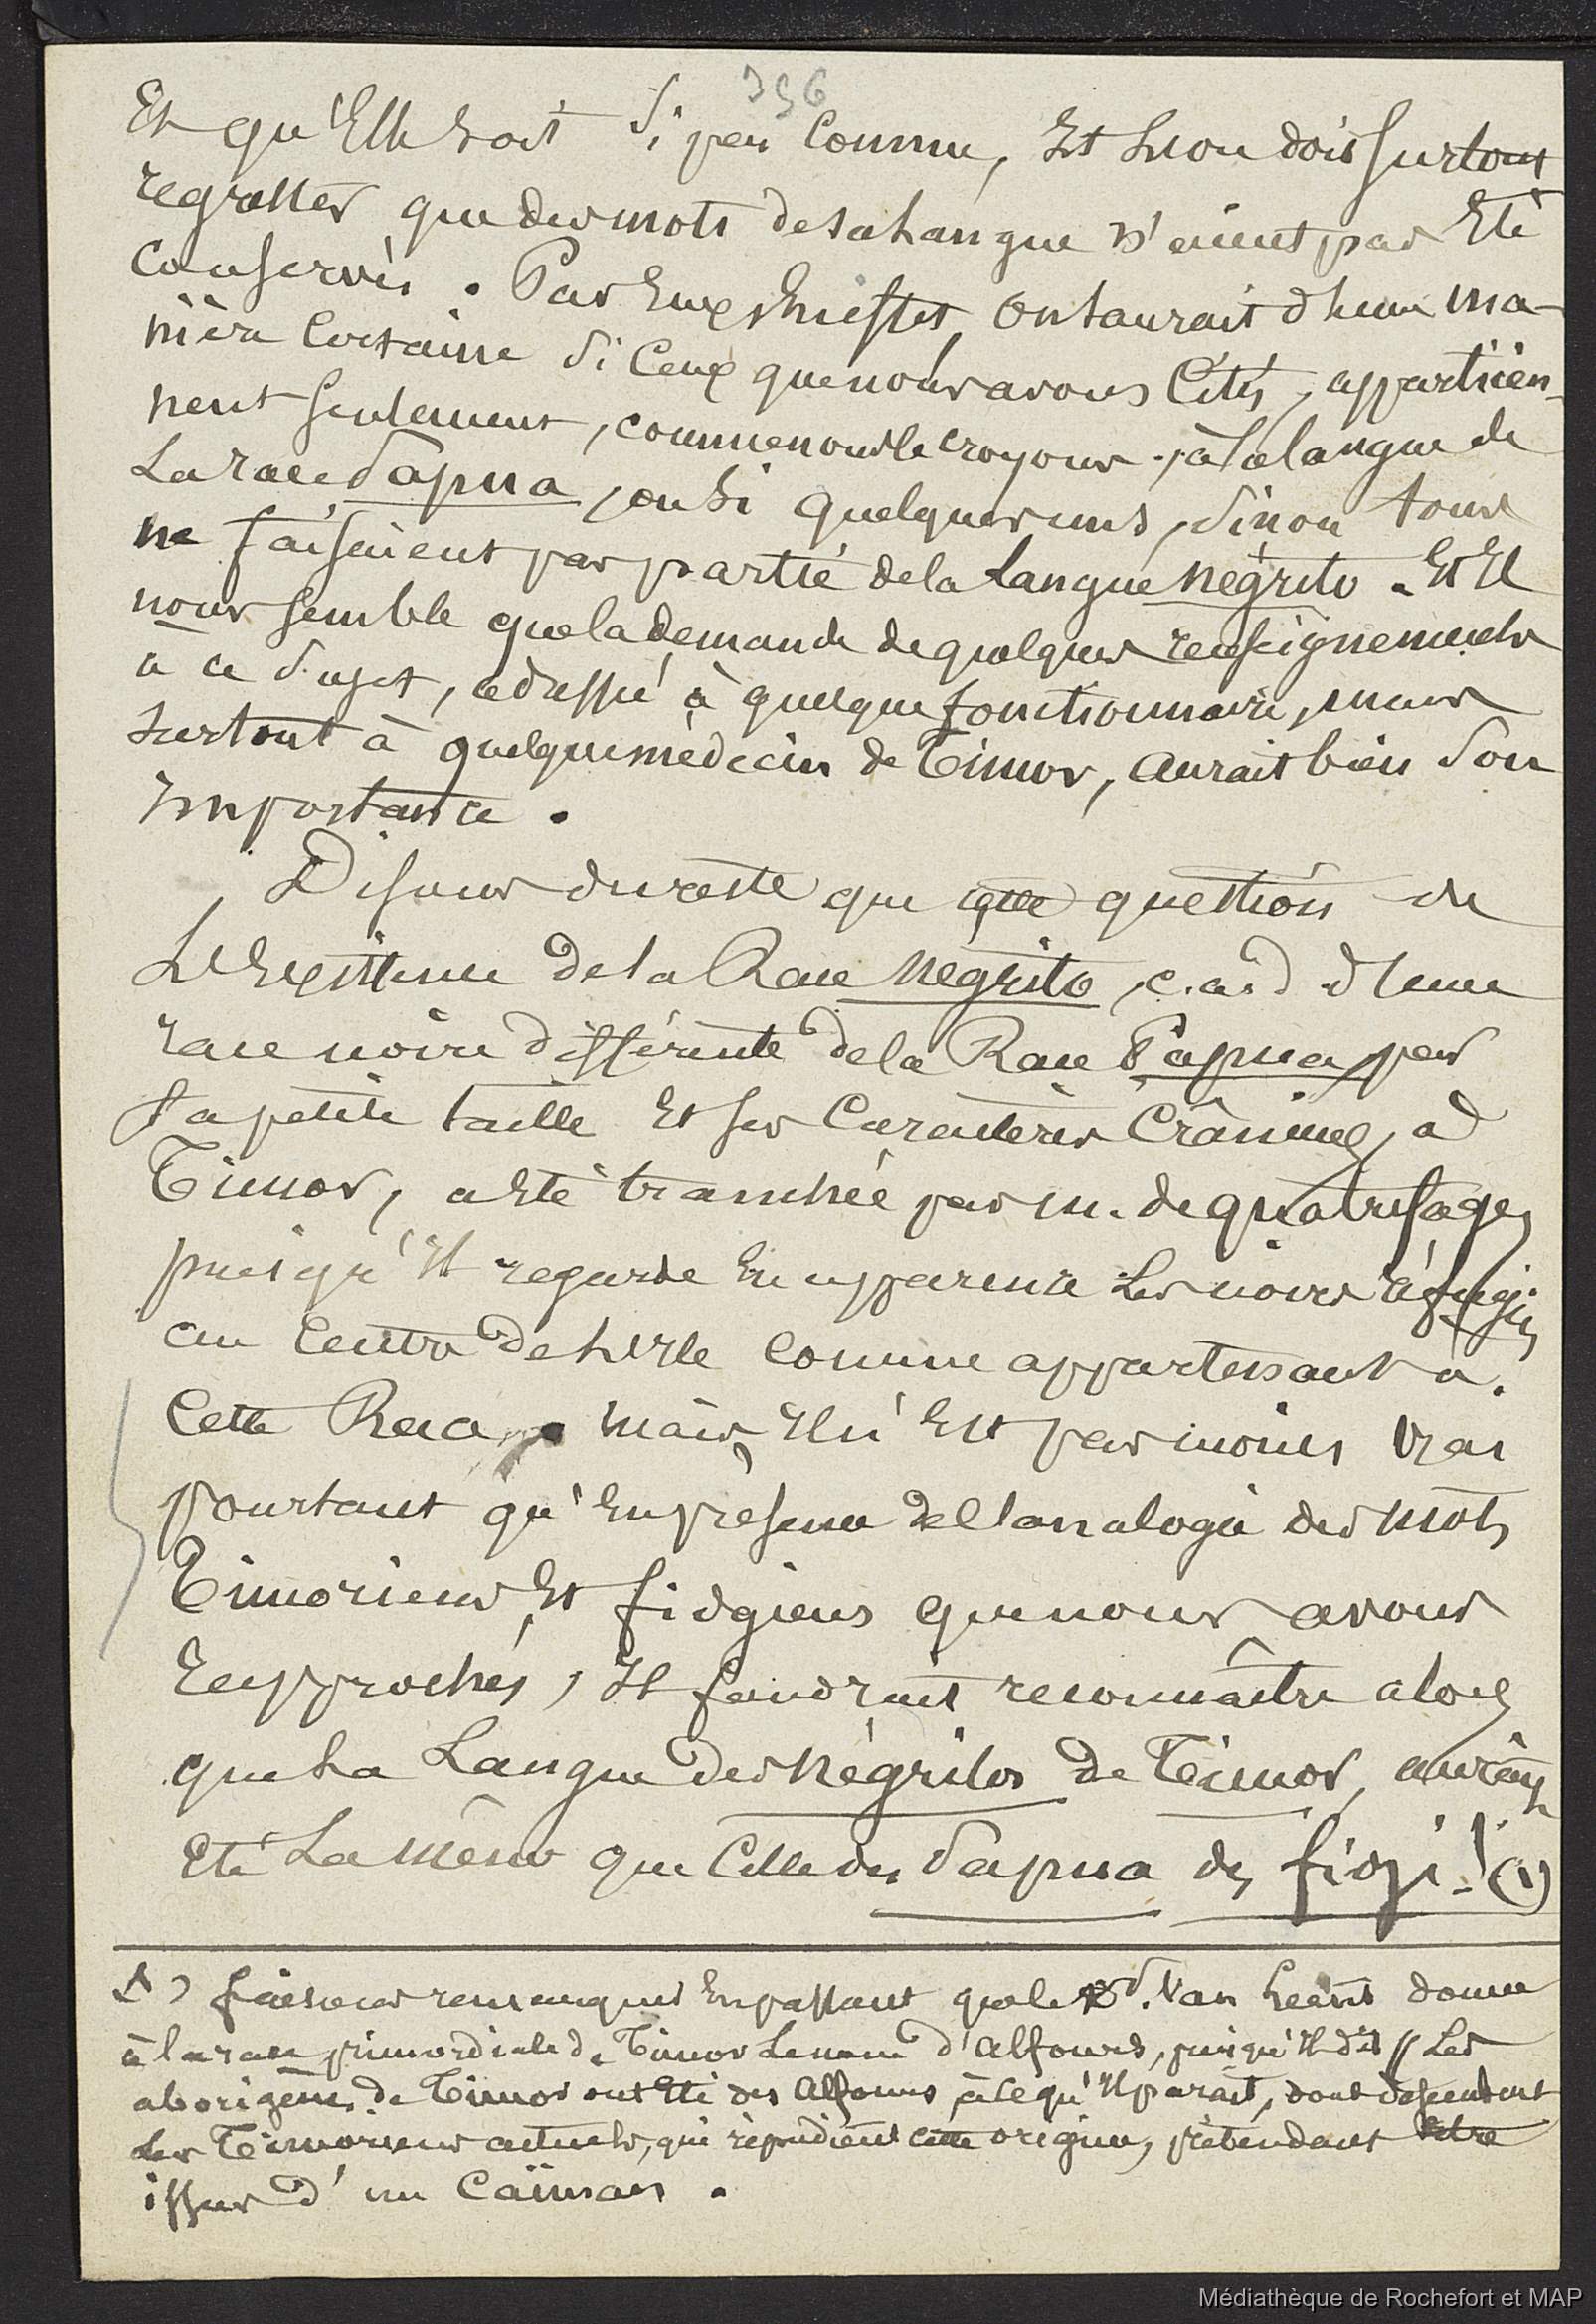 396
Et qu'Elle soit si peu connue, Et L'on doit surtout
regretter que des mots de sa Langue n'aient pas Eté
conservés. Par Eux en Effet, on saurait d'une ma-
nière certaine si ceux que nous avons cités, appartien-
nent seulement, comme nous le croyons, à la langue de
La race Papua, ou si quelques uns, sinon tous
ne faisaient pas partie de la Langue négrito. Et Il
nous semble que la demande de quelques renseignements
à ce sujet, adressée à quelque fonctionnaire, mais
surtout à quelque médecin de Timor, aurait bien son
importance.
Disons du reste que cette question de
L'Existence de la Race négrito, c.a.d d'une
race noire différente de la Race Papua par
sa petite taille Et ses caractères crâniens, à
Timor, a Eté tranchée par m. de quatrefages
puisqu'Il regarde En apparence Les noirs réfugiés
au centre de L'Ile comme appartenant à
cette Race. mais Il n'Est pas moins vrai
pourtant qu'En présence de l'analogie des mots
Timoriens Et fidgiens que nous avons
rapprochés, Il faudrait reconnaître alors
que La Langue des Négritos de Timor, aurait
Eté La même que celle des Papua des fidji! (1)
1) faisons remarquer En passant que le Dr. Van Leent donne
à la race primordiale de Timor Le nom d'Alfours, puisqu'Il dit // Les
aborigènes de Timor ont Eté des Alfours, à ce qu'Il paraît, dont descendent
Les Timoriens actuels, qui répudient cette origine, prétendant Etre
issus d'un Caïman.
Médiathèque de Rochefort et MAP